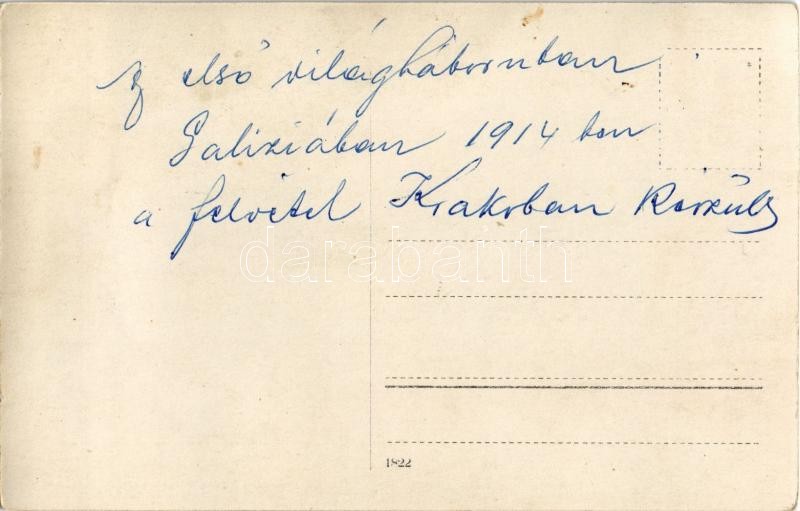 Az első világháboruban
Galiziában 1914 ben
a felvétel Krakoban készült
darabanth
1822